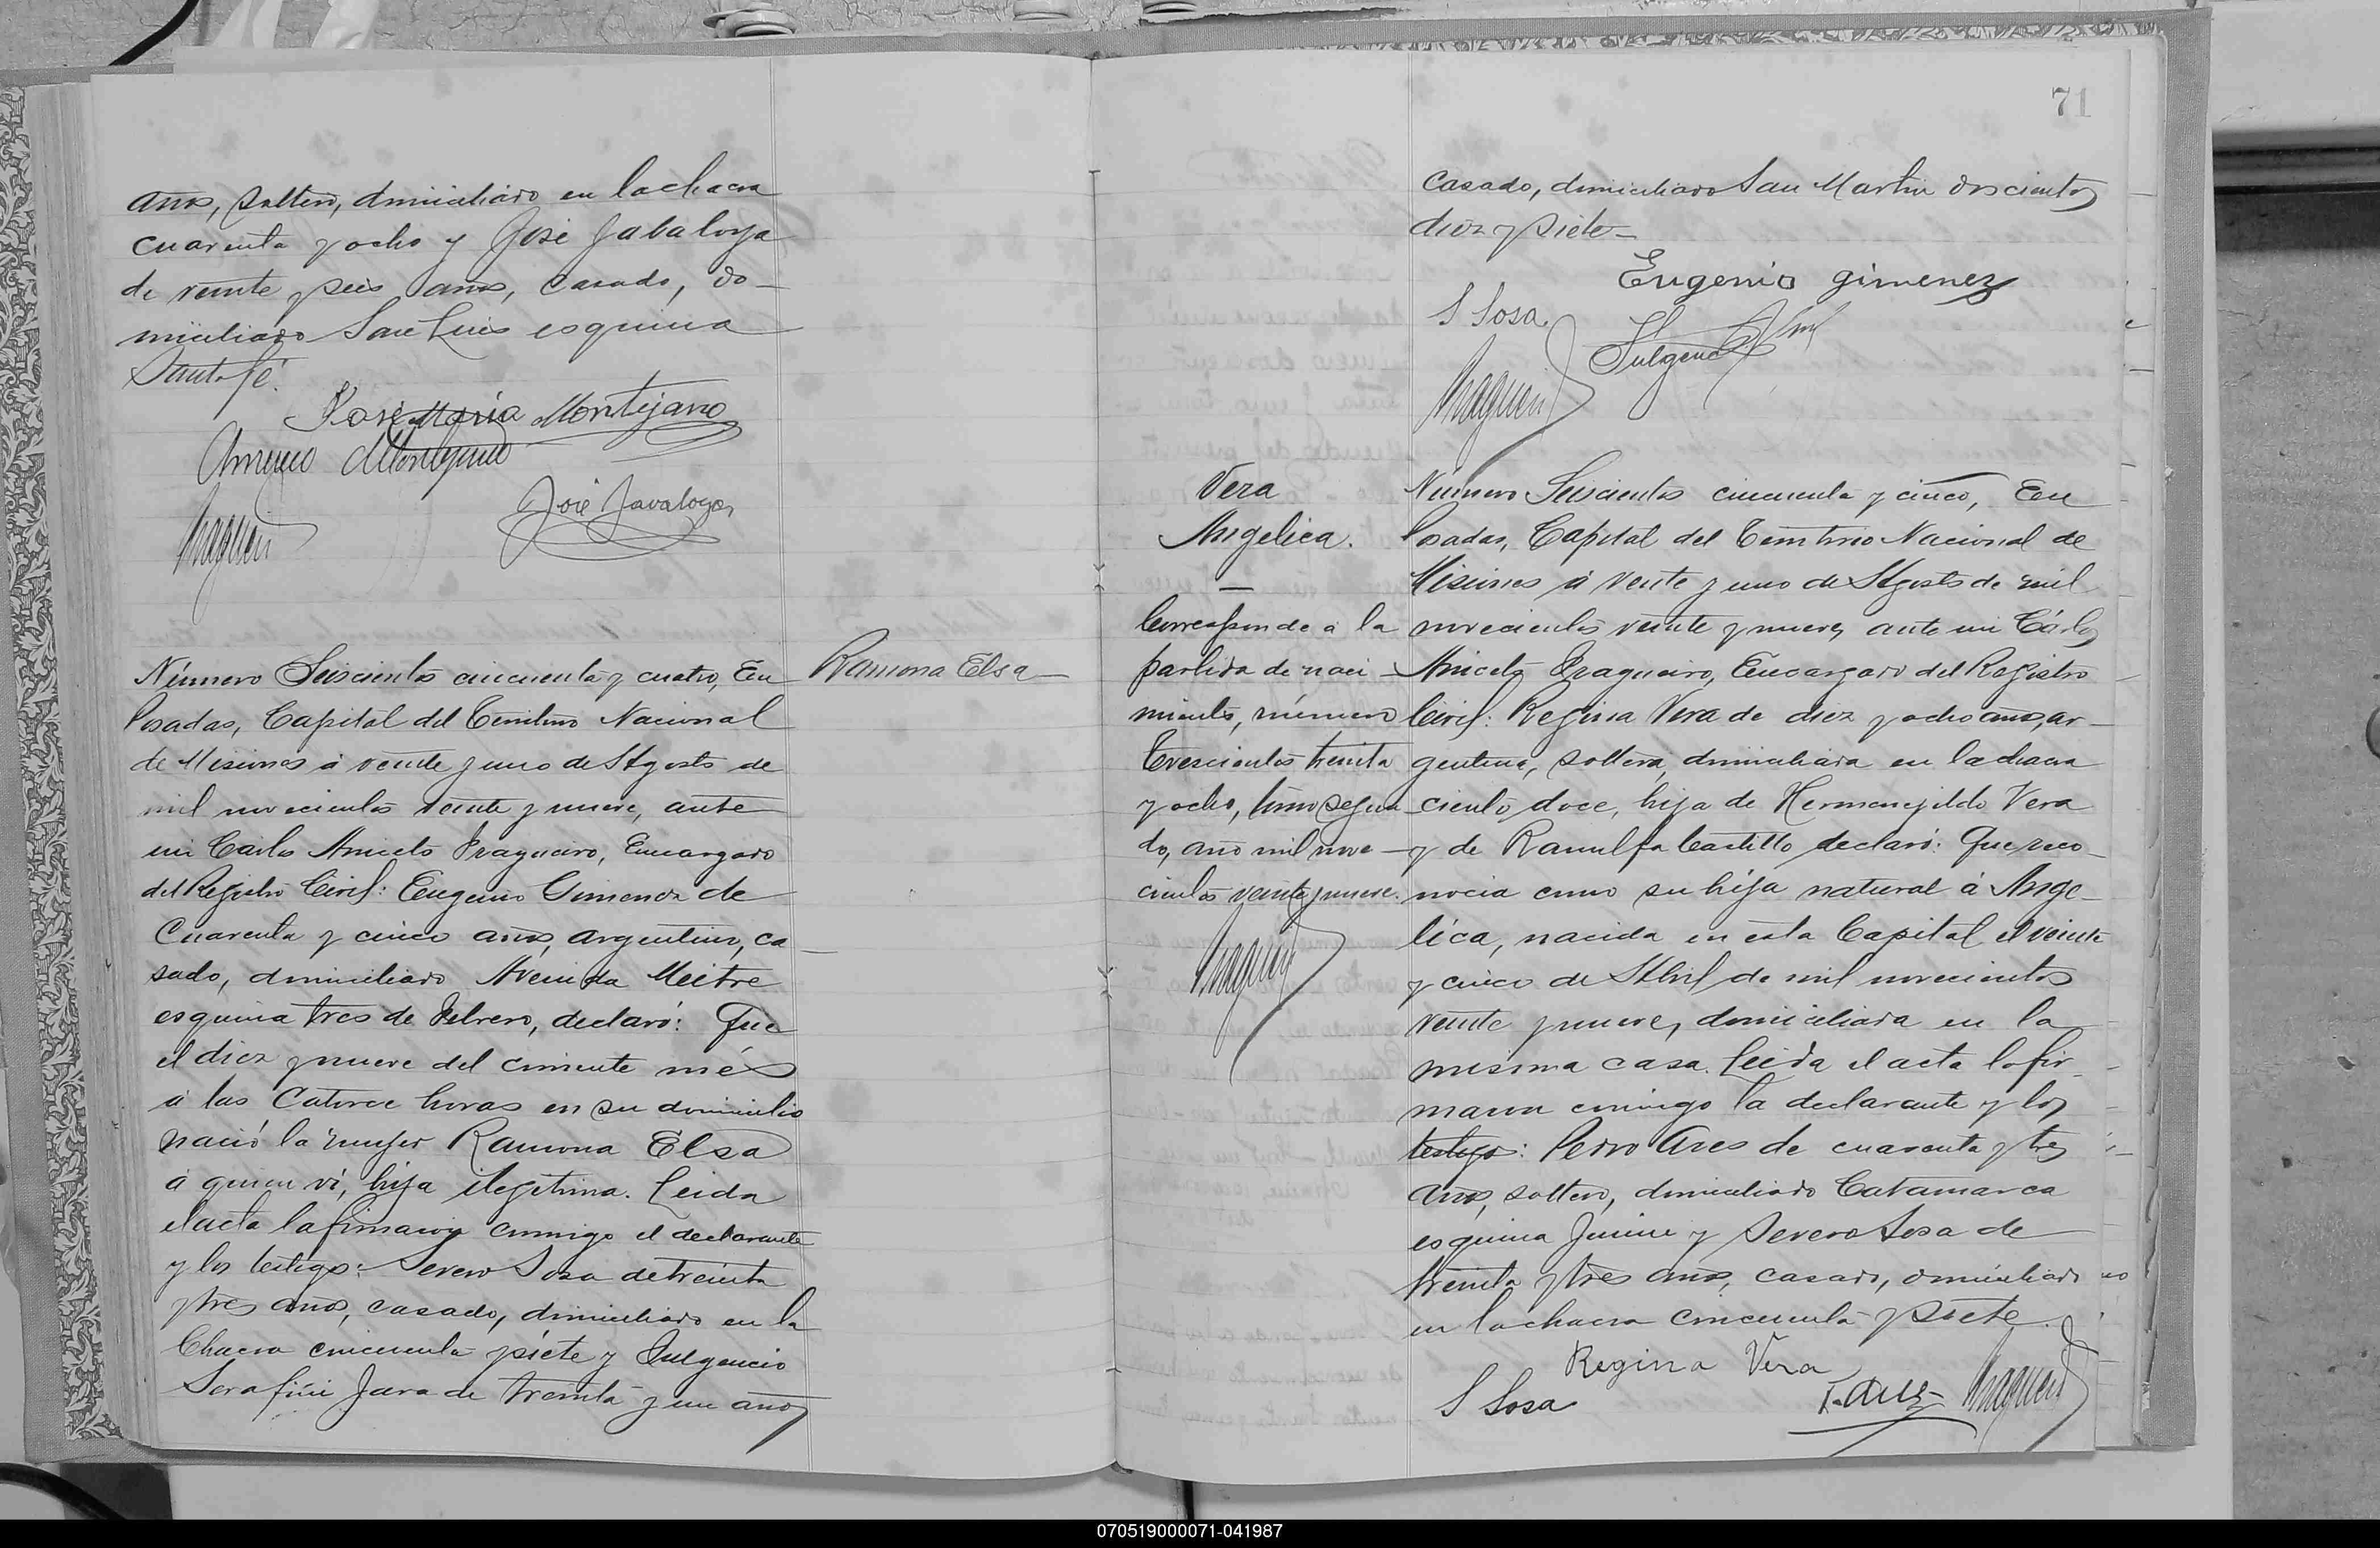 años, soltero, domiciliado en la chacra
cuarenta y ocho y José Jabaloya
de veinte y seis años, casado, do-
miciliado San Luis esquina
Santa fé.
José María Montejano
Americo Montejano
José Javaloyes
Número Seiscientos cincuenta y cuatro, En
Posadas, Capital del Territorio Nacional
de Misiones á veinte y uno de Agosto de
mil novecientos veinte y nueve, ante
mi Carlos Aniceto Fragueiro, Encargado
del Registro Civil: Eugenio Gimenez de
Cuarenta y cinco años, argentino, ca-
sado, domiciliado Avenida Mitre
esquina tres de Febrero, declaró: Que
el diez y nueve del corriente més
á las Catorce horas en su domicilio
nació la mujer Ramona Elsa
á quien vi, hija ilegitima. Leida
el acta la firmaron conmigo el declarante
y los testigos: Severo Sosa de treinta
y tres años, casado, domiciliado en la
Chacra cincuenta y siete y Fulgencio
Serafin Jara de treinta y un años
Ramona Elsa
71
casado, domiciliado San Martin doscientos
diez y siete-
Eugenio gimenez
S Sosa.
Fulgencio
Vera
Angelica.
—
Corresponde á la
partida de naci-
miento, número
Trescientos treinta
y ocho, tomo segun-
do, año mil nove-
cientos veinte y nueve.
Número Seiscientos cincuenta y cinco, En
Posadas, Capital del Territorio Nacional de
Misiones á veinte y uno de Agosto de mil
novecientos veinte y nueve, ante mi Cárlos
Aniceto Fragueiro, Encargado del Registro
Civil: Regina Vera de diez y ocho años, ar-
gentina, soltera, domiciliada en la chacra
ciento doce, hija de Hermenejildo Vera
y de Ranulfa Castillo declaró: Que reco-
nocia como su hija natural á Ange-
lica, nacida en esta Capital el veinte
y cinco de Abril de mil novecientos
veinte y nueve, domiciliada en la
misma casa. Leida el acta la fir-
maron conmigo la declarante y los
testigos: Pedro Ares de cuarenta y tres
años, soltero, domiciliado Catamarca
esquina Junin y Severo Sosa de
treinta y tres años, casado, domiciliado
en la chacra cincuenta y siete.
Regina Vera
S Sosa
070519000071-041987